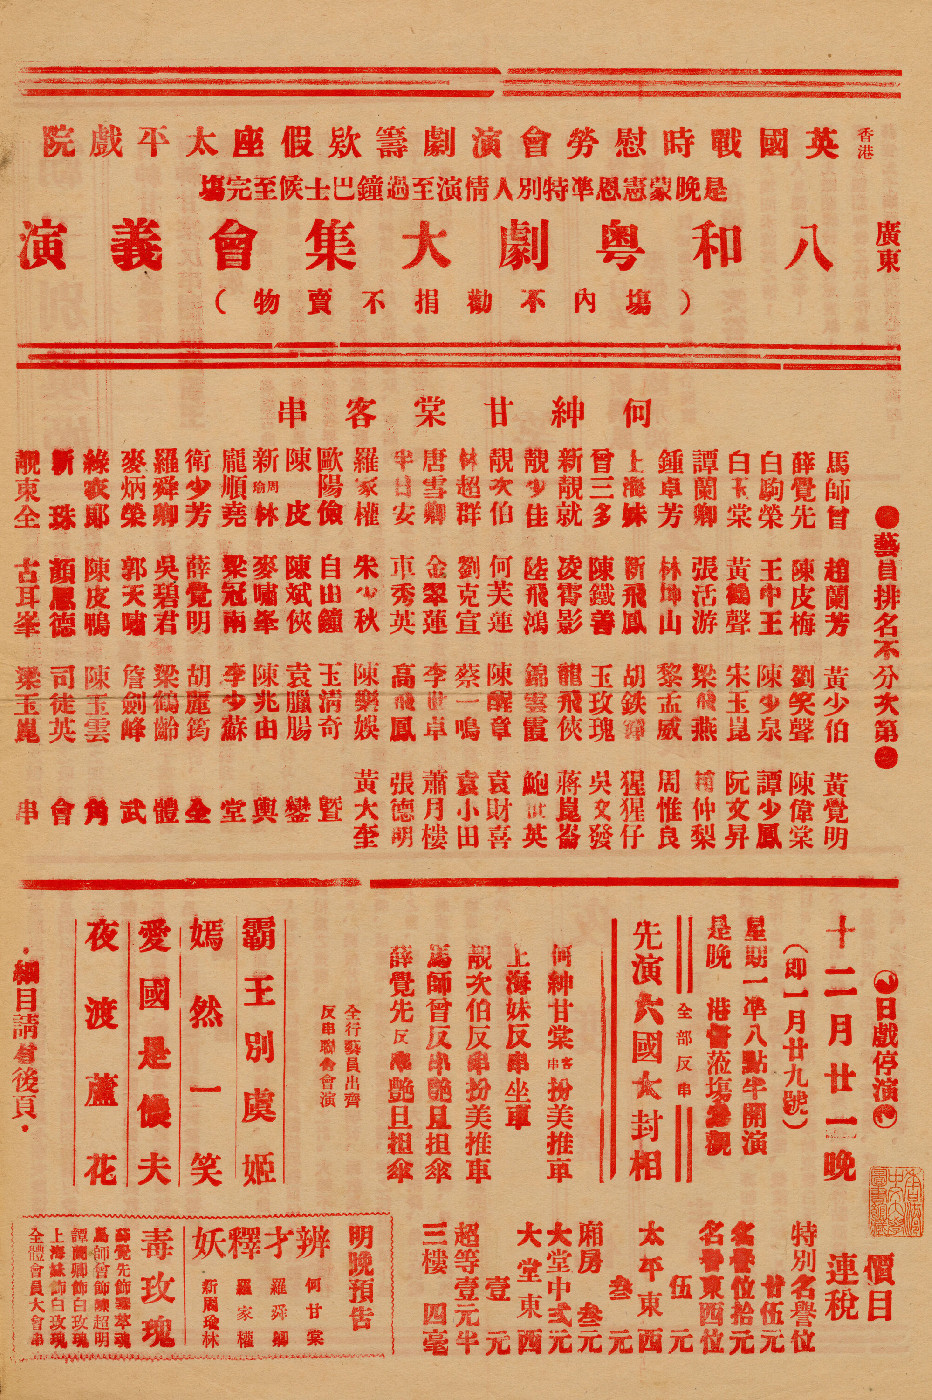 香港
英國戰時慰勞會演劇籌欵假座太平戲院
是晚蒙憲恩準特別人情演至過鐘巴士候至完塲
廣東
八和粤劇大集會義演
（塲內不勸捐不賣物）
何紳甘棠客串
●藝員排名不分次第●
馬師曾 趙蘭芳 黃少伯 黃覺明
薛覺先 陳皮梅 劉笑聲 陳偉棠
白駒榮 王中王 陳少泉 譚少鳳
白玉棠 黃鶴聲 宋玉崑 阮文昇
譚蘭卿 張活游 梁飛燕 仲梨
鍾卓芳 林坤山 黎孟威 周惟良
上海妹 新飛鳳 胡鉄錚 猩猩仔
曾三多 陳鐵善 玉玫瑰 吳文發
新靚就 凌霄影 龍飛俠 蔣崑崙
靚少佳 陸飛鴻 錦雲霞 鮑世英
靚次伯 何芙蓮 陳醒章 袁財喜
林超群 劉克宣 蔡一鳴 袁小田
唐雪卿 金翠蓮 李世卓 蕭月樓
半日安 車秀英 高飛鳳 張德明
羅家權 朱少秋 陳樂娛 黃大奎
歐陽儉 自由鐘 玉滿奇 暨
陳皮 陳斌俠 袁臘腸 鑾
新周瑜林 麥嘯峯 陳兆由 輿
龐順堯 梁冠南 李少蘇 堂
衛少芳 薛覺明 胡麗筠 全
羅舜卿 吳碧君 梁鶴齡 體
麥炳榮 郭天嘯 詹劍峰 武
綠衣郎 陳皮鴨 陳玉雲 角
新珠 顏思德 司徒英 會
靚東全 古耳峯 梁玉崑 串
日戲停演
十二月廿一晚
（即一月廿九號）
星期一準八點半開演
是晚 港督蒞塲參觀
全部反串
先演六國大封相
何紳甘棠客串扮美推車
上海妹反串坐車
靚次伯反串扮美推車
馬師曾反串艷旦担傘
薛覺先反串艷旦担傘
全行藝員出齊
反串聯會會演
霸王別虞姬
嫣然一笑
愛國是儂夫
夜渡蘆花
·細目請看後頁·
價目
連稅
特別名譽位 廿伍元
名譽位拾元
名譽東西位 伍元
太平東西 叁元
廂房 叁元
大堂中弍元
大堂東西 壹元
超等壹元半
三樓 四毫
明晚預告
辨才釋妖
何甘棠
羅舜卿
羅家權
新周瑜林
毒玫瑰
薛覺先飾
馬師曾飾陳超明
譚蘭卿飾白玫瑰
上海妹飾白玫瑰
全體會員大會串